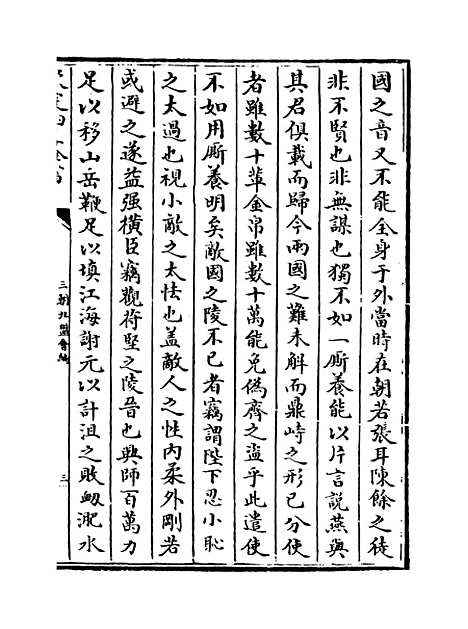 國之音又不能全身于外當時在朝若張耳陳餘之徒
非不賢也非無謀也獨不如一廝養能以片言說燕與
其君俱載而歸今兩國之難未解而鼎峙之形已分使
者雖數十輩金帛雖數十萬能免偽齊之盜乎此遣使
不如用廝養明矣敵國之陵不已者竊謂陛下忍小恥
之太過也視小敵之太怯也蓋敵人之性內柔外剛若
或避之遂益强橫臣竊觀苻堅之陵晉也興師百萬力
足以移山岳鞭足以填江海謝元以計沮之敗衂淝水
三朝北盟會編
三